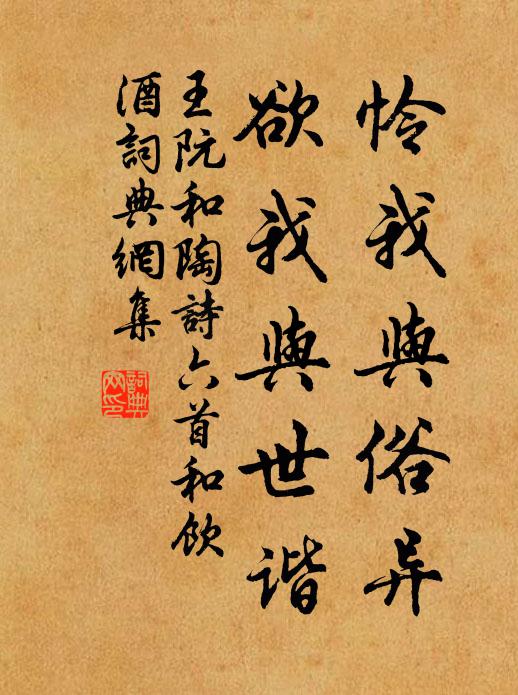 怜我與俗异
欲我與世谐
王阮和陶詩六首和飲
酒詞典網集
詞典
网印